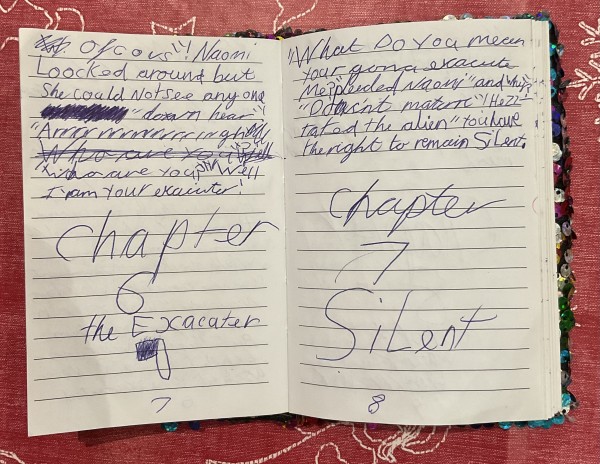 Ofcous!! Naomi
Loocked around but
she could Not see any one
"down hear"!
"Arrrrrrrrrrrrrrrrrgh
Who are You
"who are You" Well
I am Your exaicuter!
Chapter
6
the Exacater
7
"What Do You mean
Your gonna exacute
Me? pleeded Naomi "and why?"
"Doesn't mater" Hezz-
tatod the alien "You have
the right to remain Silent.
Chapter
7
SiLent
8